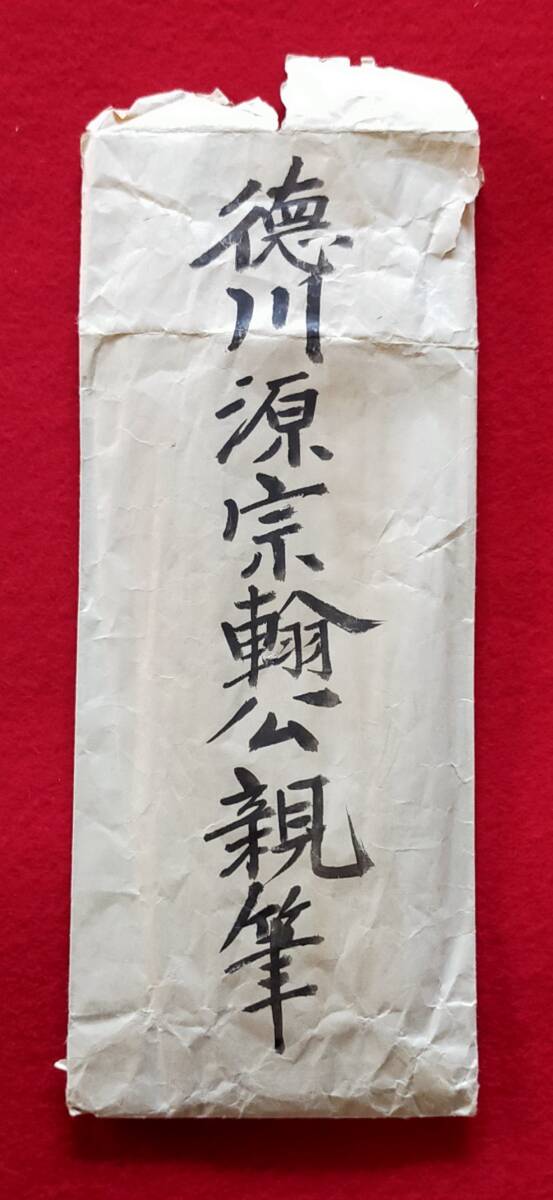 徳川源宗翰公親筆